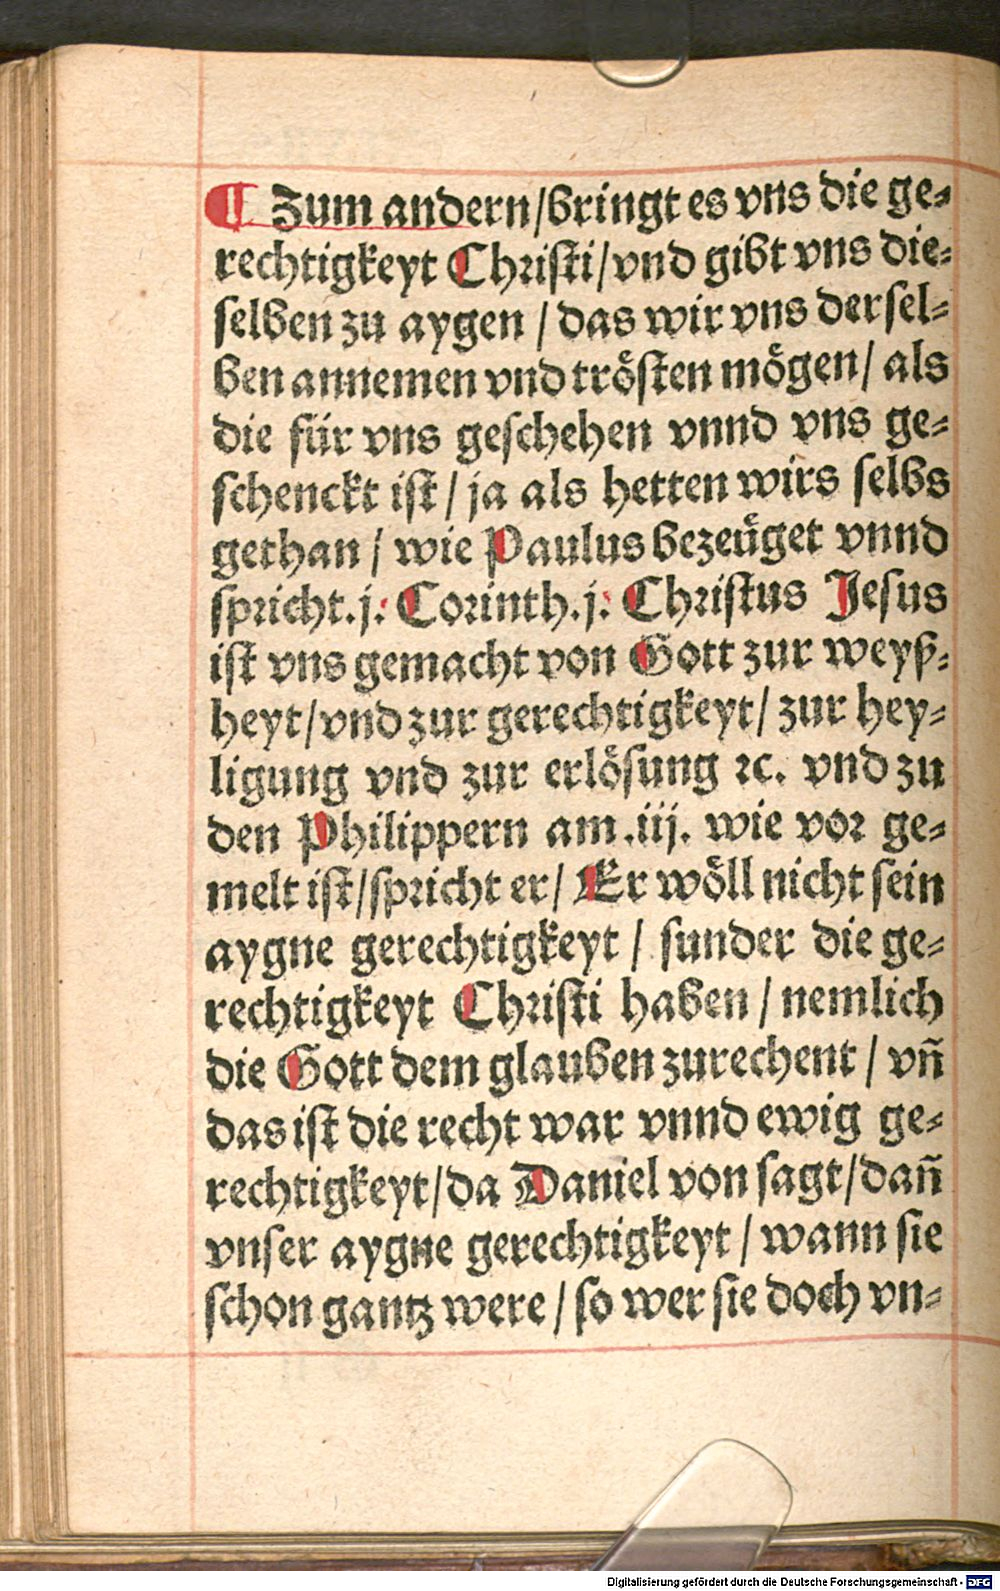 ¶ Zum andern/bringt es vns die ge⸗
rechtigkeyt Christi/vnd gibt vns die⸗
selben zu aygen / das wir vns der sel⸗
ben annemen vnd trösten mögen/ als
die für vns geschehen vnnd vns ge⸗
schenckt ist/ ja als hetten wirs selbs
gethan / wie Paulus bezeüget vnnd
spricht.j: Corinth.j: Christus Jesus
ist vns gemacht von Gott zur weyß⸗
heyt/vnd zur gerechtigkeyt/ zur hey⸗
ligung vnd zur erlösung ꝛc. vnd zu
den Philippern am.iij. wie vor ge⸗
melt ist/spricht er/ Er wöll nicht sein
aygne gerechtigkeyt / sunder die ge⸗
rechtigkeyt Christi haben / nemlich
die Gott dem glauben zurechent / vñ
das ist die recht war vnnd ewig ge⸗
rechtigkeyt/da Daniel von sagt/dañ
vnser aygne gerechtigkeyt / wann sie
schon gantz were / so wer sie doch vn⸗
Digitalisierung gefördert durch die Deutsche Forschungsgemeinschaft - DFG